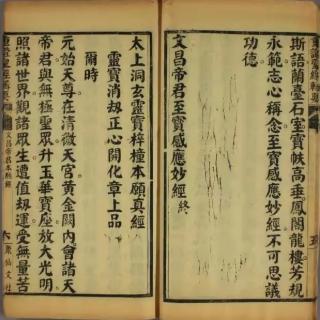 斯語蘭臺石室寶帙高垂鳳閣龍樓芳規
永範志心稱念至寶感應妙經不可思議
功德
文昌帝君至寶感應妙經終
太上洞玄靈寶梓潼本願真經
靈寶消劫正心開化章上品
爾時
元始天尊在清微天宮黃金闕內會諸天
帝君與無極聖眾升玉華寶座放大光明
照諸世界觀諸眾生遭值劫運受無量苦